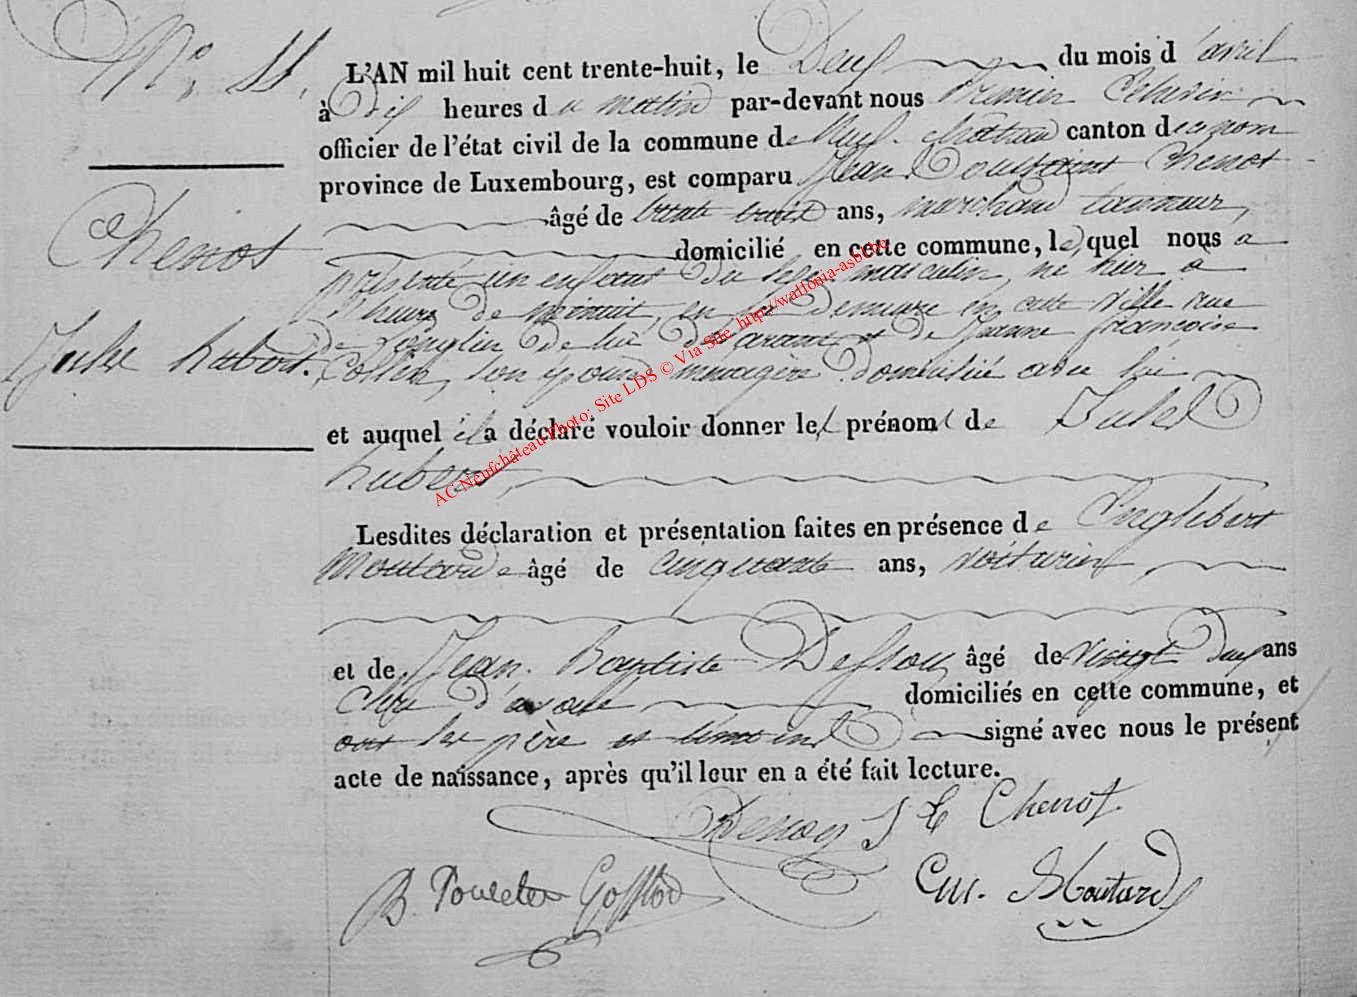 N° 11.
L'AN mil huit cent trente-huit, le Deux du mois d'avril
à dix heures du matin par-devant nous Premier Echevin
officier de l'état civil de la commune de Neufchâteau canton de ce nom
province de Luxembourg, est comparu Jean Toussaint Chenot
âgé de trente huit ans, marchand tanneur,
domicilié en cette commune, lequel nous a
présenté un enfant du sexe masculin, né hier à
heure de minuit, en sa demeure en cette ville rue
de Longlier, de lui déclarant et de Jeanne françoise
Collin, son épouse ménagère domiciliée avec lui
et auquel il a déclaré vouloir donner les prénoms de Jules
hubert,
Chenot
Jules hubert.
Lesdites déclaration et présentation faites en présence de Englebert
Moutarde âgé de cinquante ans, voiturier,
et de Jean Baptiste âgé de vingt deux ans
domiciliés en cette commune, et
ont les père et témoins signé avec nous le présent
acte de naissance, après qu'il leur en a été fait lecture.
J T Chenot
B. Poncelet
Moutarde
AC Neufchâteau Photo: Site LDS © Via Site http://wallonia-asbl.be